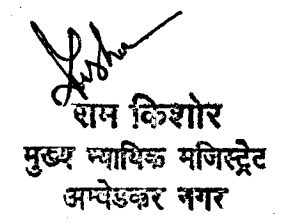 राम किशोर
मुख्य न्यायिक मजिस्ट्रेट
अम्बेडकर नगर